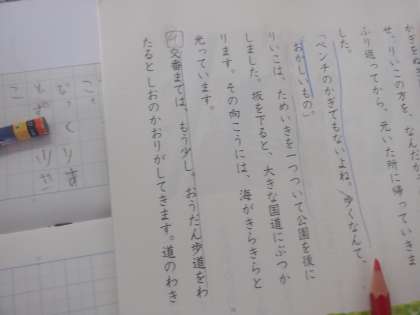 かぎをね
せ、りいこの方を、なんだか
ふり返ってから、元いた所に帰っていきま
した。
「ベンチのかぎでもないよね。歩くなんて、
おかしいもの。」
りいこは、ためいきを一つついて公園を後に
しました。坂を下ると、大きな国道にぶつか
ります。その向こうには、海がきらきらと
光っています。
交番までは、もう少し。おうだん歩道をわ
たるとしおのかおりがしてきます。道のわき
こ。
びっくりす
こ